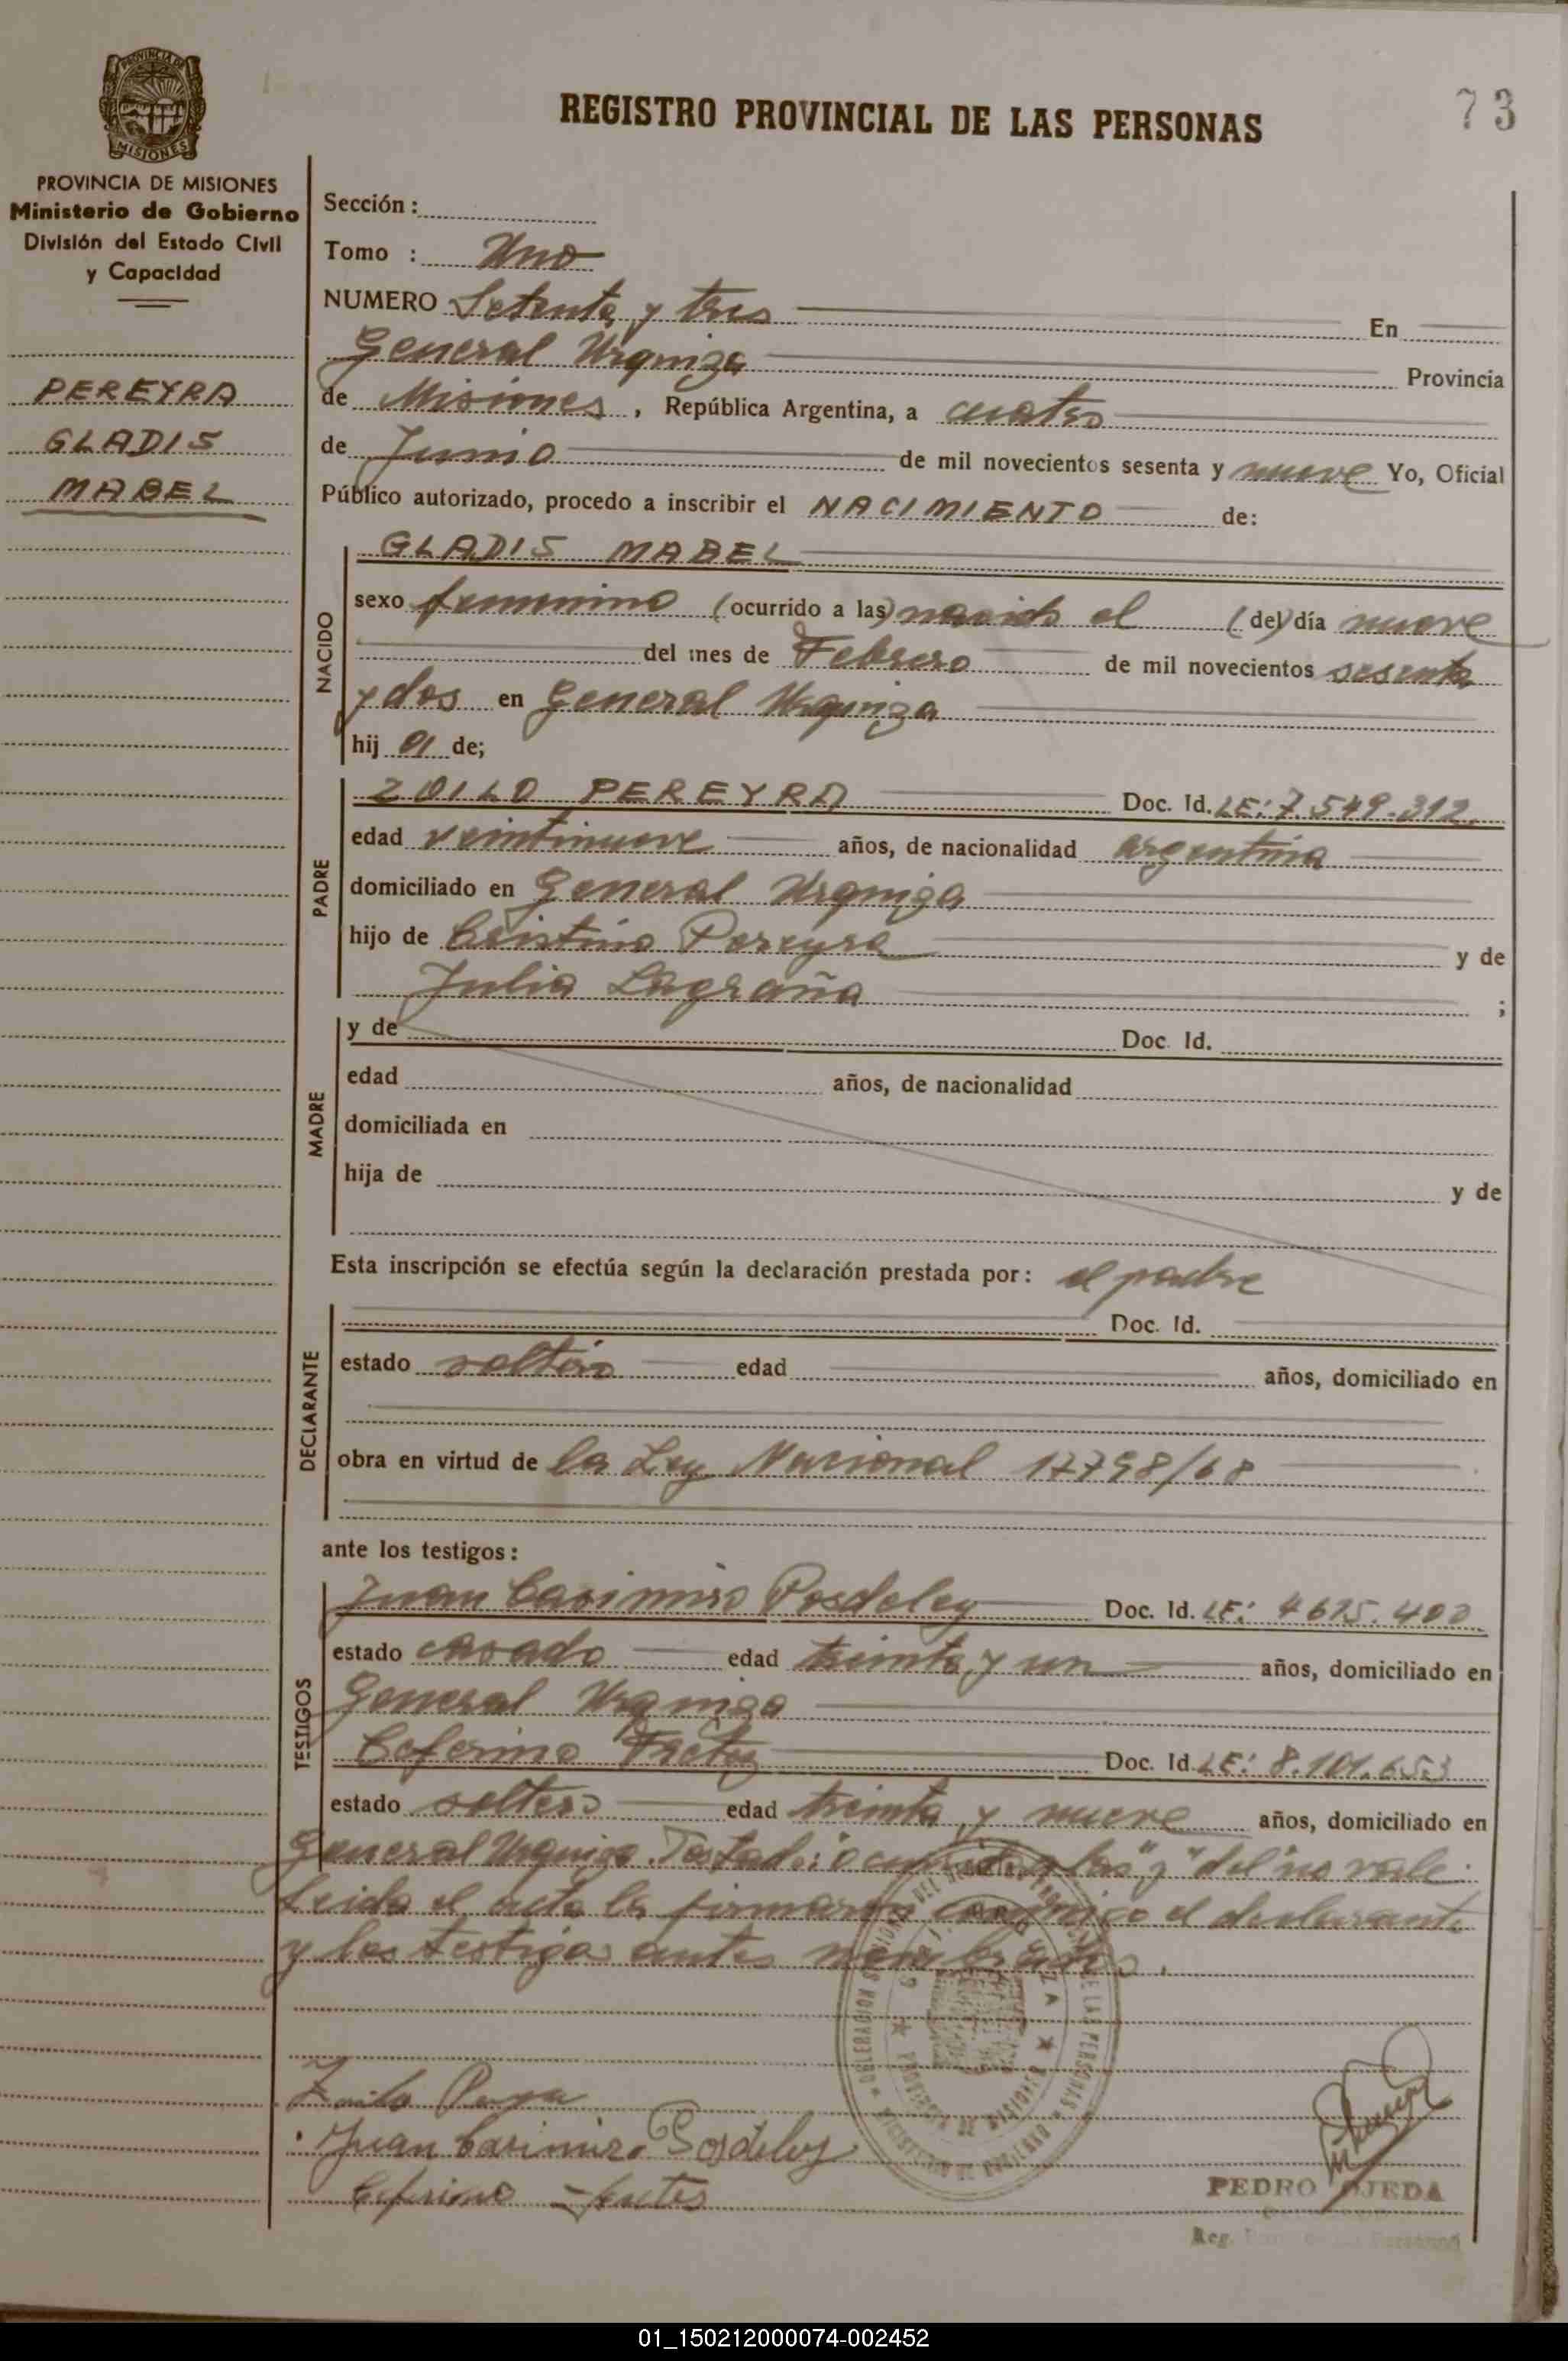 73
REGISTRO PROVINCIAL DE LAS PERSONAS
PROVINCIA DE
MISIONES
PROVINCIA DE MISIONES
Ministerio de Gobierno
División del Estado Civil
y Capacidad
PEREYRA
GLADIS
MABEL
Sección :
Tomo : Uno
NUMERO Setenta y tres En
General Urquiza Provincia
de Misiones , República Argentina, a cuatro
de Junio de mil novecientos sesenta y nueve Yo, Oficial
Público autorizado, procedo a inscribir el NACIMIENTO de:
NACIDO
GLADIS MABEL
sexo femenino (ocurrido a las) nacida el (del) día nueve
del mes de Febrero de mil novecientos sesenta
y dos en General Urquiza
hij a de;
PADRE
ZOILO PEREYRA Doc. Id. LE: 7.549.312
edad veintinueve años, de nacionalidad argentina
domiciliado en General Urquiza
hijo de Cristino Pereyra y de
Julia Lagraña ;
MADRE
y de Doc. Id.
edad años, de nacionalidad
domiciliada en
hija de y de
Esta inscripción se efectúa según la declaración prestada por: el padre
DECLARANTE
Doc. Id.
estado soltero edad años, domiciliado en
obra en virtud de la Ley Nacional 17798/68
ante los testigos:
TESTIGOS
Juan Casimiro Posdeley Doc. Id. LE: 4675.402
estado casado edad treinta y un años, domiciliado en
General Urquiza
Ceferino Doc. Id. LE: 8.101.653
estado soltero edad treinta y nueve años, domiciliado en
General Urquiza. Testado: "ocurrido a las" y "del" no vale.
Leida el acta la firmaron conmigo el declarante
y los testigos antes nombrados.
Juan Casimiro Posdeley
Ceferino
PEDRO OJEDA
Reg.
01_150212000074-002452